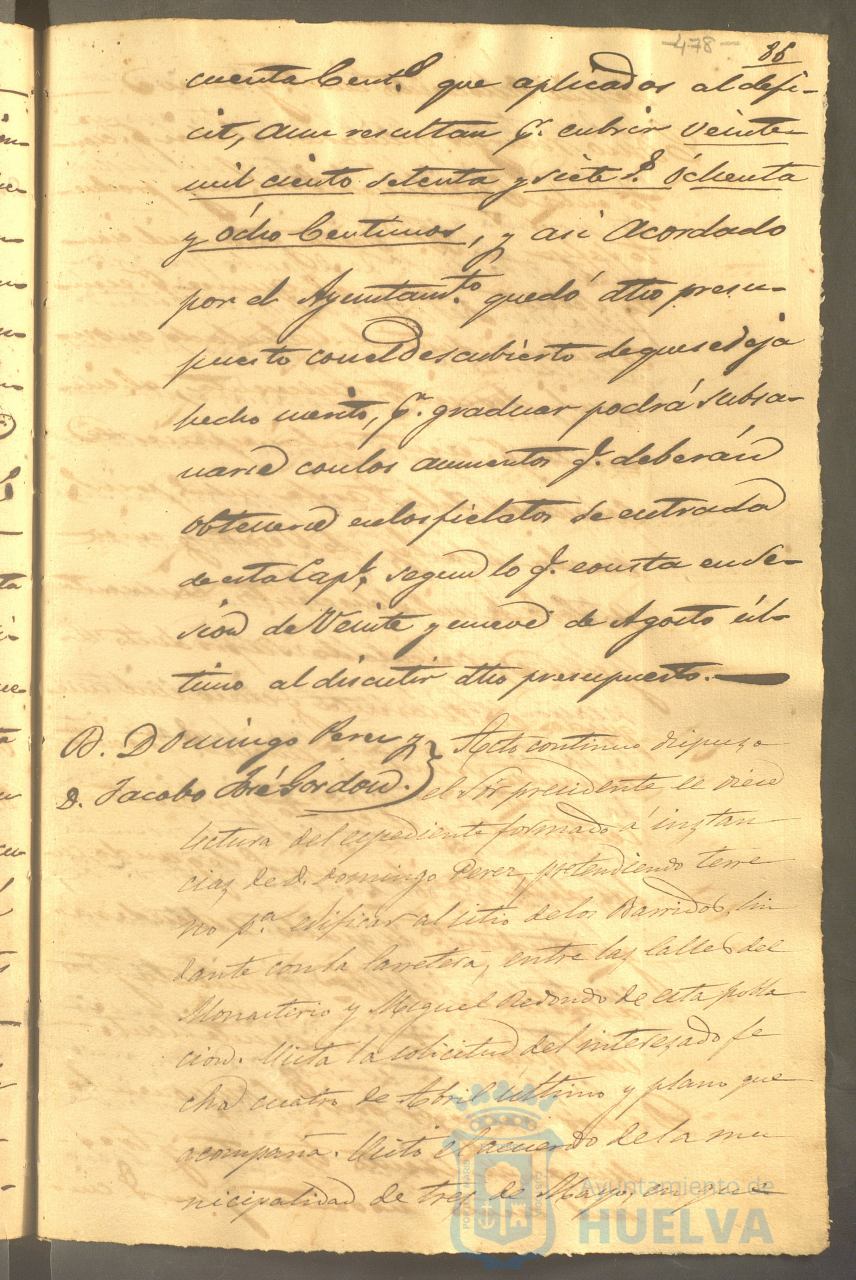 -478-
86
cuenta Cent.s que aplicados al defi-
cit, aun resultan p.r cubrir veinte
mil ciento setenta y siete r.s óchenta
y ócho Centimos, y asi Acordado
por el Ayuntam.to quedó dho presu-
puesto con el descubierto de que se deja
hecho merito, q.e graduar podrá subsa-
narse con los aumentos q.e deberán
obtenerse en los fielatos de entrada
de esta Cap.l, segun lo q.e consta en se-
sion de Veinte y nueve de Agosto úl-
timo al discutir dho presupuesto.
D. Domingo Perez y
D. Jacobo José Gordon.
Acto continuo dispuso
el Sr presidente se diese
lectura del expediente formado á instan
cias de D. Domingo Perez, pretendiendo terre
no p.a edificar al sitio de los Barridos, lin
dante con la Carretera, entre las Calles del
Monasterio y Miguel Redondo de esta pobla
cion. Vista la solicitud del interesado fe
cha cuatro de Abril último y plano que
acompaña. Visto el acuerdo de la mu
nicipalidad de tres de Mayo, en que
Ayuntamiento de
HUELVA